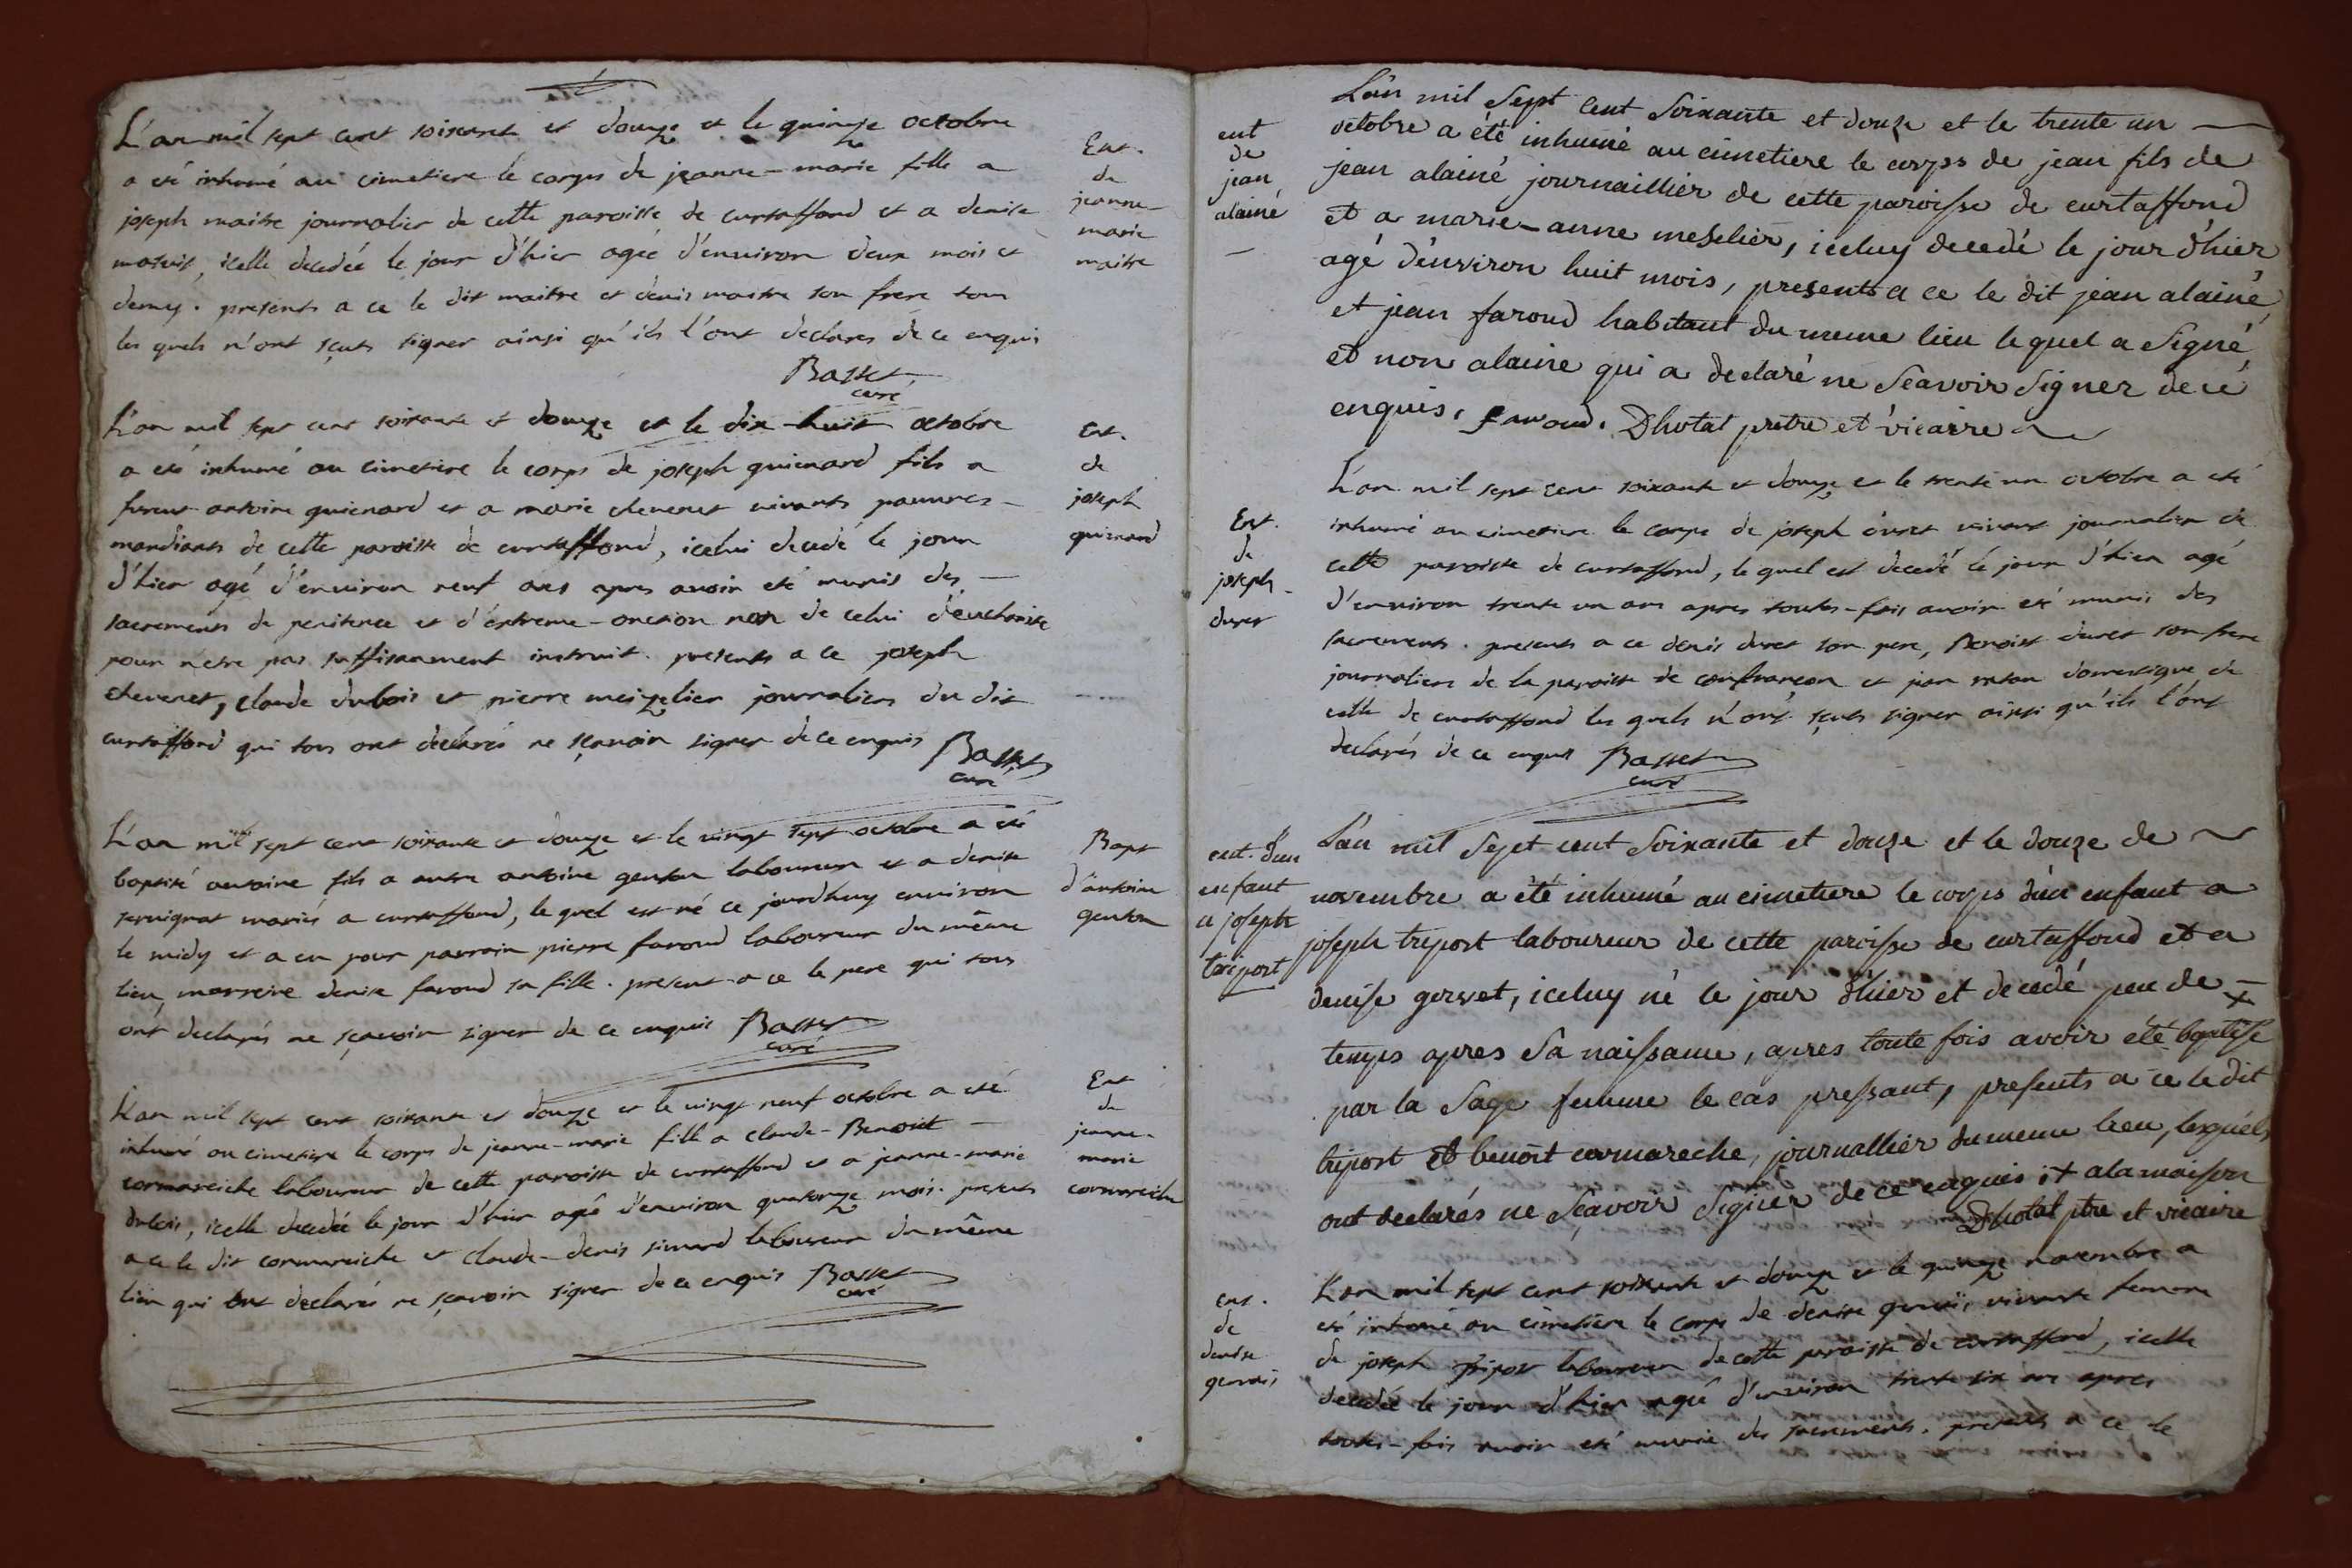 L'an mil sept cent soixante et douze et le quinze octobre
a eté inhumé au cimetiere le corps de jeanne-marie fille a
joseph maitre journalier de cette paroisse de curtaffond et a denise
icelle decedée le jour d'hier agée d'environ deux mois et
demy. presents a ce le dit maitre et denis maitre son frere tous
les quels n'ont sçuts signer ainsi qu'ils l'ont declarés de ce enquis
Basset
curé
Ent.
de
jeanne-
marie
maitre
L'an mil sept cent soixante et douze et le dix-huit octobre
a eté inhumé au cimetiere le corps de joseph guienard fils a
furent antoine guienard et a marie chevenet vivants pauvres-
mandiants de cette paroisse de curtaffond, icelui decedé le jour
d'hier agé d'environ neuf ans apres avoir eté munis des -
sacrements de penitence et d'extreme-onction non de celui d'euchariste
pour n'etre pas suffisanment instruit. presents a ce joseph
chevenet, claude dubois et pierre meizelier journaliers du dit
curtaffond qui tous ont declarés ne sçavoir signer de ce enquis Basset
curé
Ent.
de
joseph
guienard
L'an mil sept cent soixante et douze et le vingt sept octobre a eté
baptisé antoine fils a autre antoine genton laboureur et a denise
servignat mariés a curtaffond, le quel est né ce jourdhuy environ
le midy et a eu pour parrain pierre faroud laboureur du même
lieu, marreine denise faroud sa fille. present a ce le pere qui tous
ont declarés ne sçavoir signer de ce enquis Basset
curé
Bapt
d'antoine
genton
L'an mil sept cent soixante et douze et le vingt neuf octobre a eté
inhumé au cimetiere le corps de jeanne-marie fille a claude-Benoit -
cormareiche laboureur de cette paroisse de curtaffond et a jeanne-marie
dubois, icelle decedée le jour d'hier agée d'environ quatorze mois. presents
a ce le dit cormareiche et claude-denis simard laboureur du même
lieu qui ont declarés ne sçavoir signer de ce enquis Basset
curé
Ent
de
jeanne-
marie
cormareiche
L'an mil sept cent soixante et douze et le trente un
octobre a été inhumé au cimetiere le corps de jean fils de
jean alainé journaillier de cette paroisse de curtaffond
et a marie-anne meselier, iceluy decedé le jour d'hier
agé d'environ huit mois, presents a ce le dit jean alainé,
et jean faroud habitant du meme lieu lequel a signé,
et non alainé qui a declaré ne sçavoir signer de ce
enquis. faroud. Dhotal pretre et vicaire
ent
de
jean
alainé
L'an mil sept cent soixante et douze et le trente un octobre a eté
inhumé au cimetiere le corps de joseph duret vivant journalier de
cette paroisse de curtaffond, le quel est decedé le jour d'hier agé
d'environ trente un ans apres toutes-fois avoir eté munis des
sacrements. presents a ce denis duret son pere, Benoist duret son frere
journaliers de la paroisse de confrançon et de
celle de curtaffond les quels n'ont sçuts signer ainsi qu'ils l'ont
declarés de ce enquis Basset
curé
Ent.
de
joseph
duret
L'an mil sept cent soixante et douze et le douze de
novembre a été inhumé au cimetiere le corps d'un enfant a
joseph treport laboureur de cette paroisse de curtaffond et a
denise gervet, iceluy né le jour d'hier et decedé peu de +
temps apres sa naissance, apres toute fois avoir été baptisé
par la sage femme le cas pressant, presents a ce le dit
treport et benoit cormareche, journallier du meme lieu, lesquels
ont declarés ne sçavoir signer de ce enquis + a la maison
Dhotal ptre et vicaire
ent. d'un
enfant
a joseph
treport
L'an mil sept cent soixante et douze et le quinze novembre a
eté inhumé au cimetiere le corps de denise gervais vivante femme
de joseph tripot laboureur de cette paroisse de curtaffond, icelle
decedée le jour d'hier agée d'environ trente six ans apres
toutes-fois avoir eté munie des sacrements. presents a ce le
ent.
de
denise
gervais